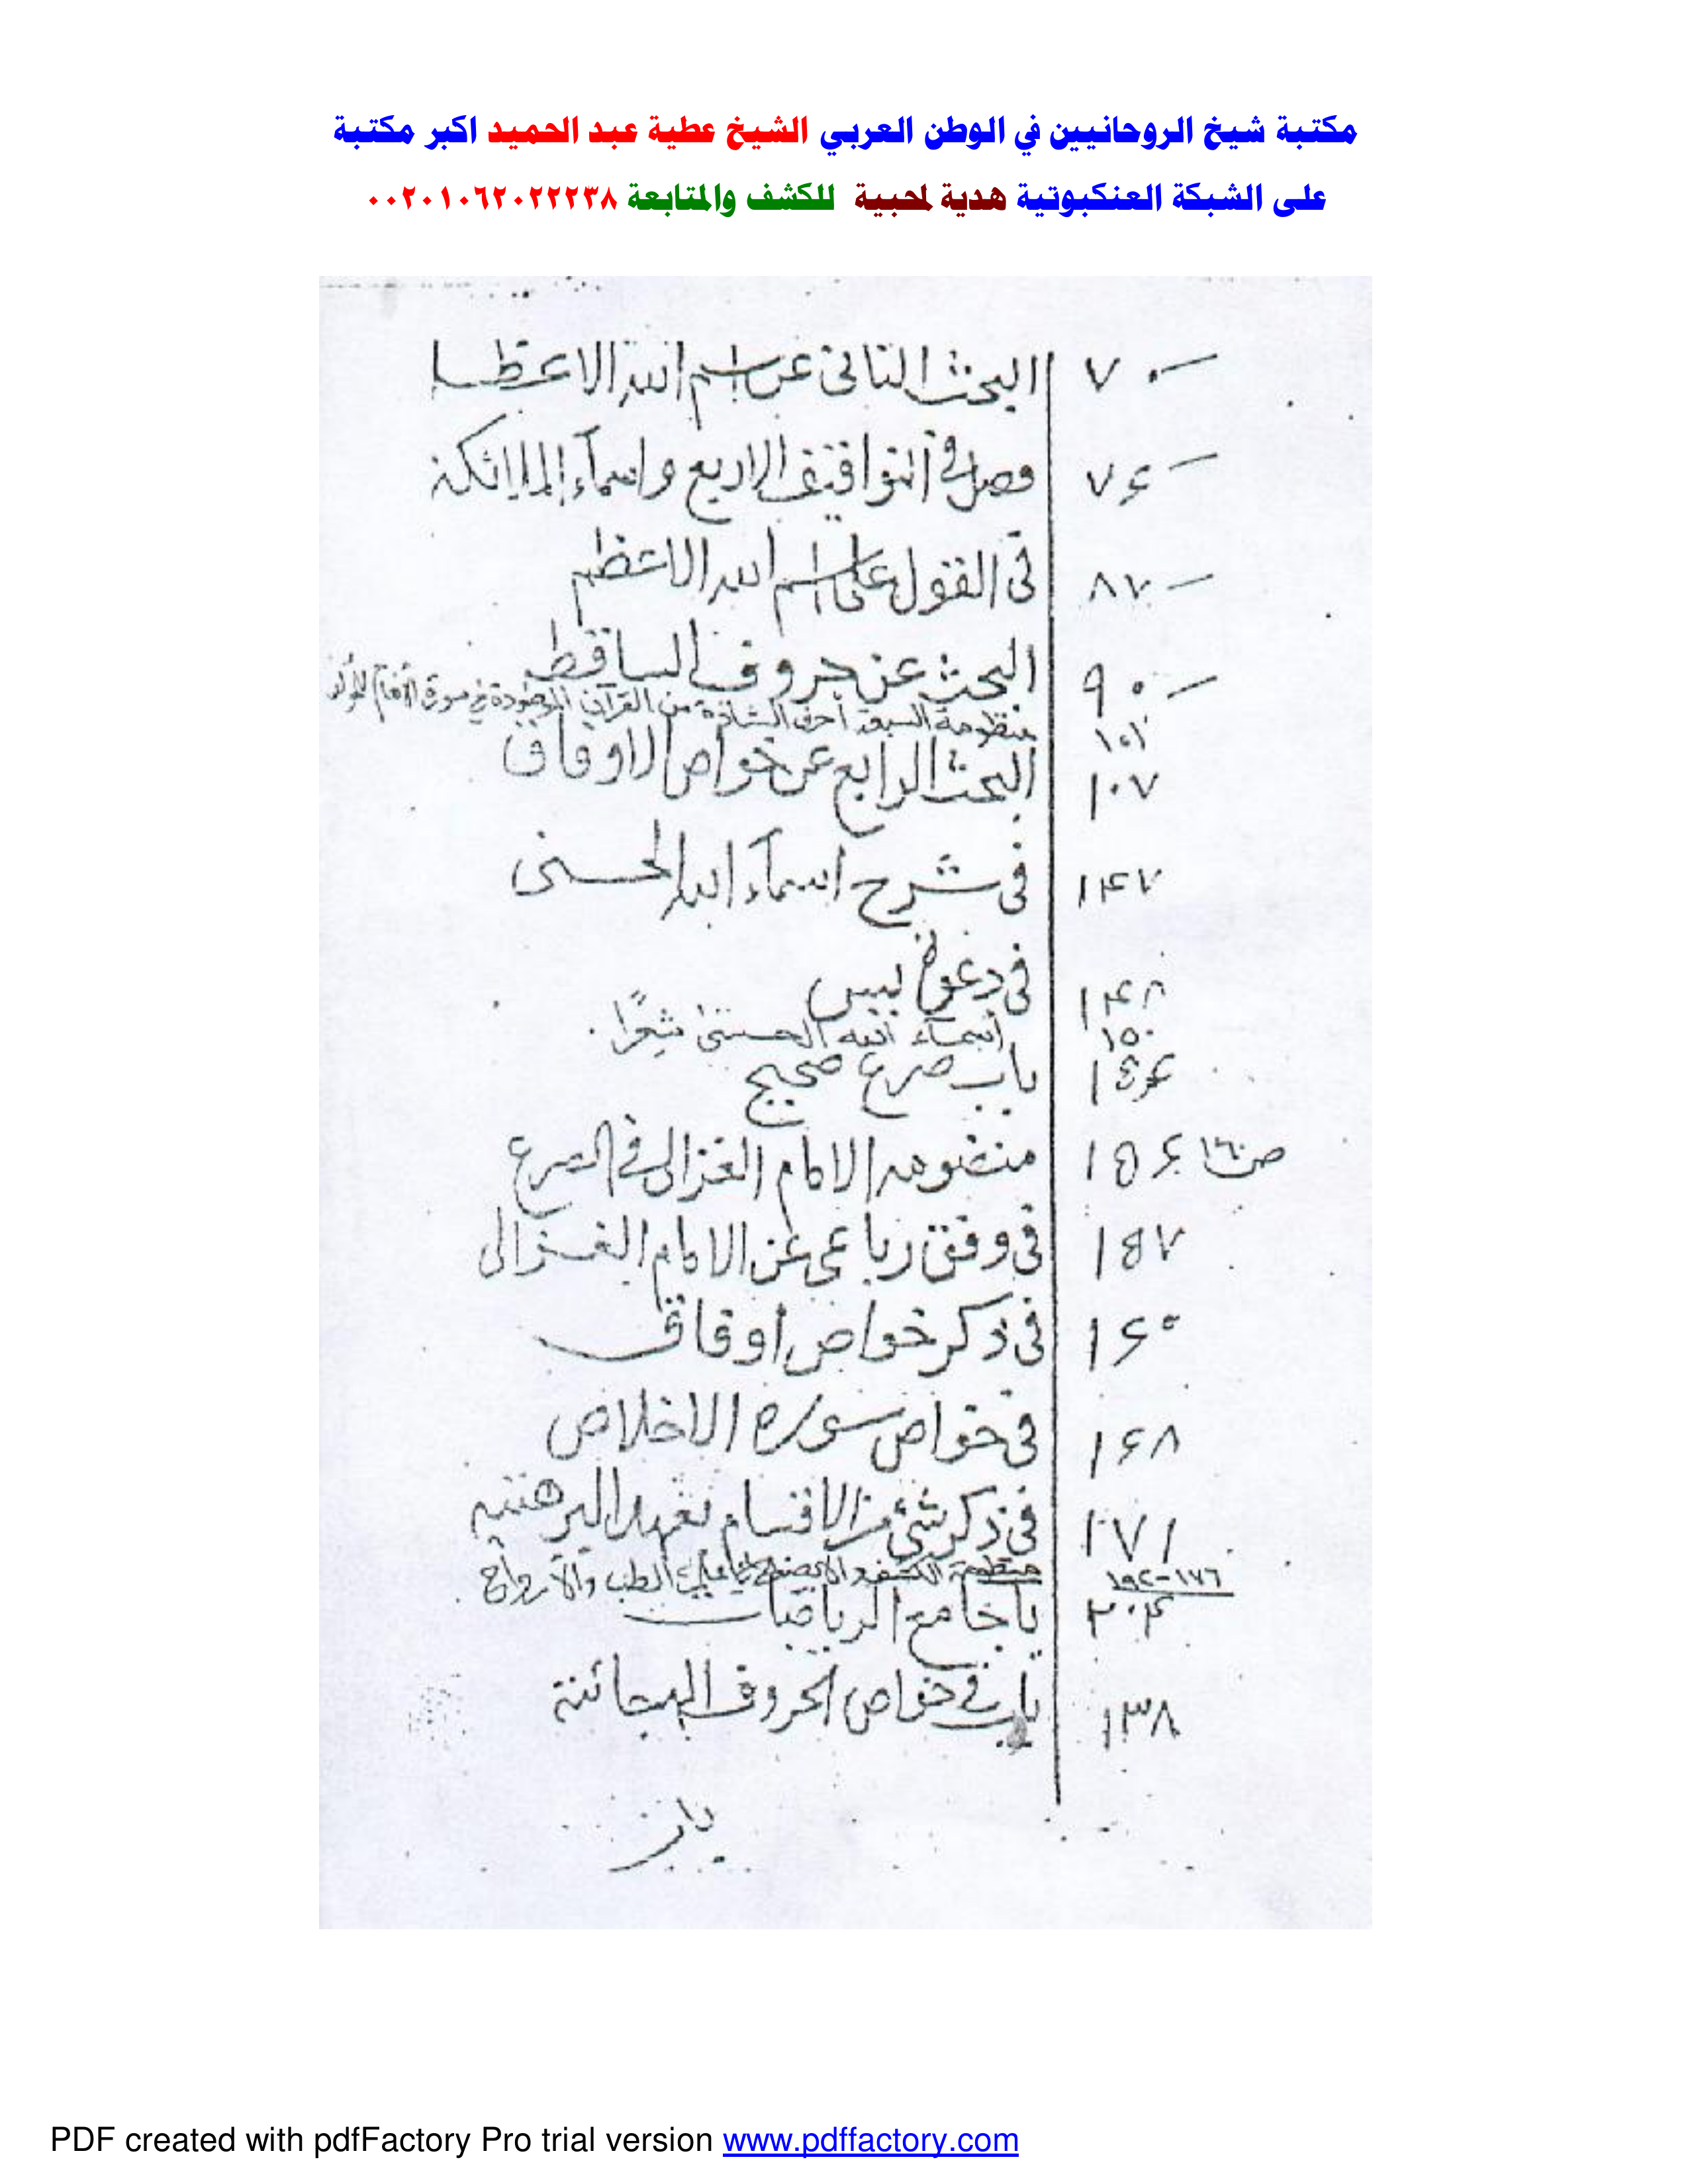 مكتبة شيخ الروحانيين في الوطن العربي الشيخ عطية عبد الحميد اكبر مكتبة
على الشبكة العنكبوتية هدية لمحبية للكشف والمتابعة ٠٠٢٠١٠٦٢٠٢٢٢٣٨
٧٠ البحث الثانى عن اسم الله الاعظم
٧۶ وصل فى التوافيق الاربع واسماء الملائكة
٨٧ فى القول على اسم الله الاعظم
٩٠ البحث عن حروف الساقط
١٠١ منظومة السبعة أحرف الشاذة من القرآن الموجودة في سورة الأنعام
١٠٧ البحث الرابع عن خواص الاوفاق
١۴٧ فى شرح اسماء الله الحسنى
١۴٨ فى دعوة يس
١٥٠ أسماء الله الحسنى شعرًا
باب صرع صحيح
١۵۶ ص ١٦٠ منضومه الامام الغزالى فى الصرع
١۵٧ فى وفق رباعى عن الامام الغزالى
١۶٠ فى ذكر خواص اوفاق
١۶٨ فى خواص سوره الاخلاص
١٧١ فى ذكر شئ من الاقسام
١٧٦-١٩٢ منظومة الطب والأرواح
٢٠۴ جامع الرياضيات
١٣٨ باب فى خواص الحروف الهجائية
PDF created with pdfFactory Pro trial version www.pdffactory.com